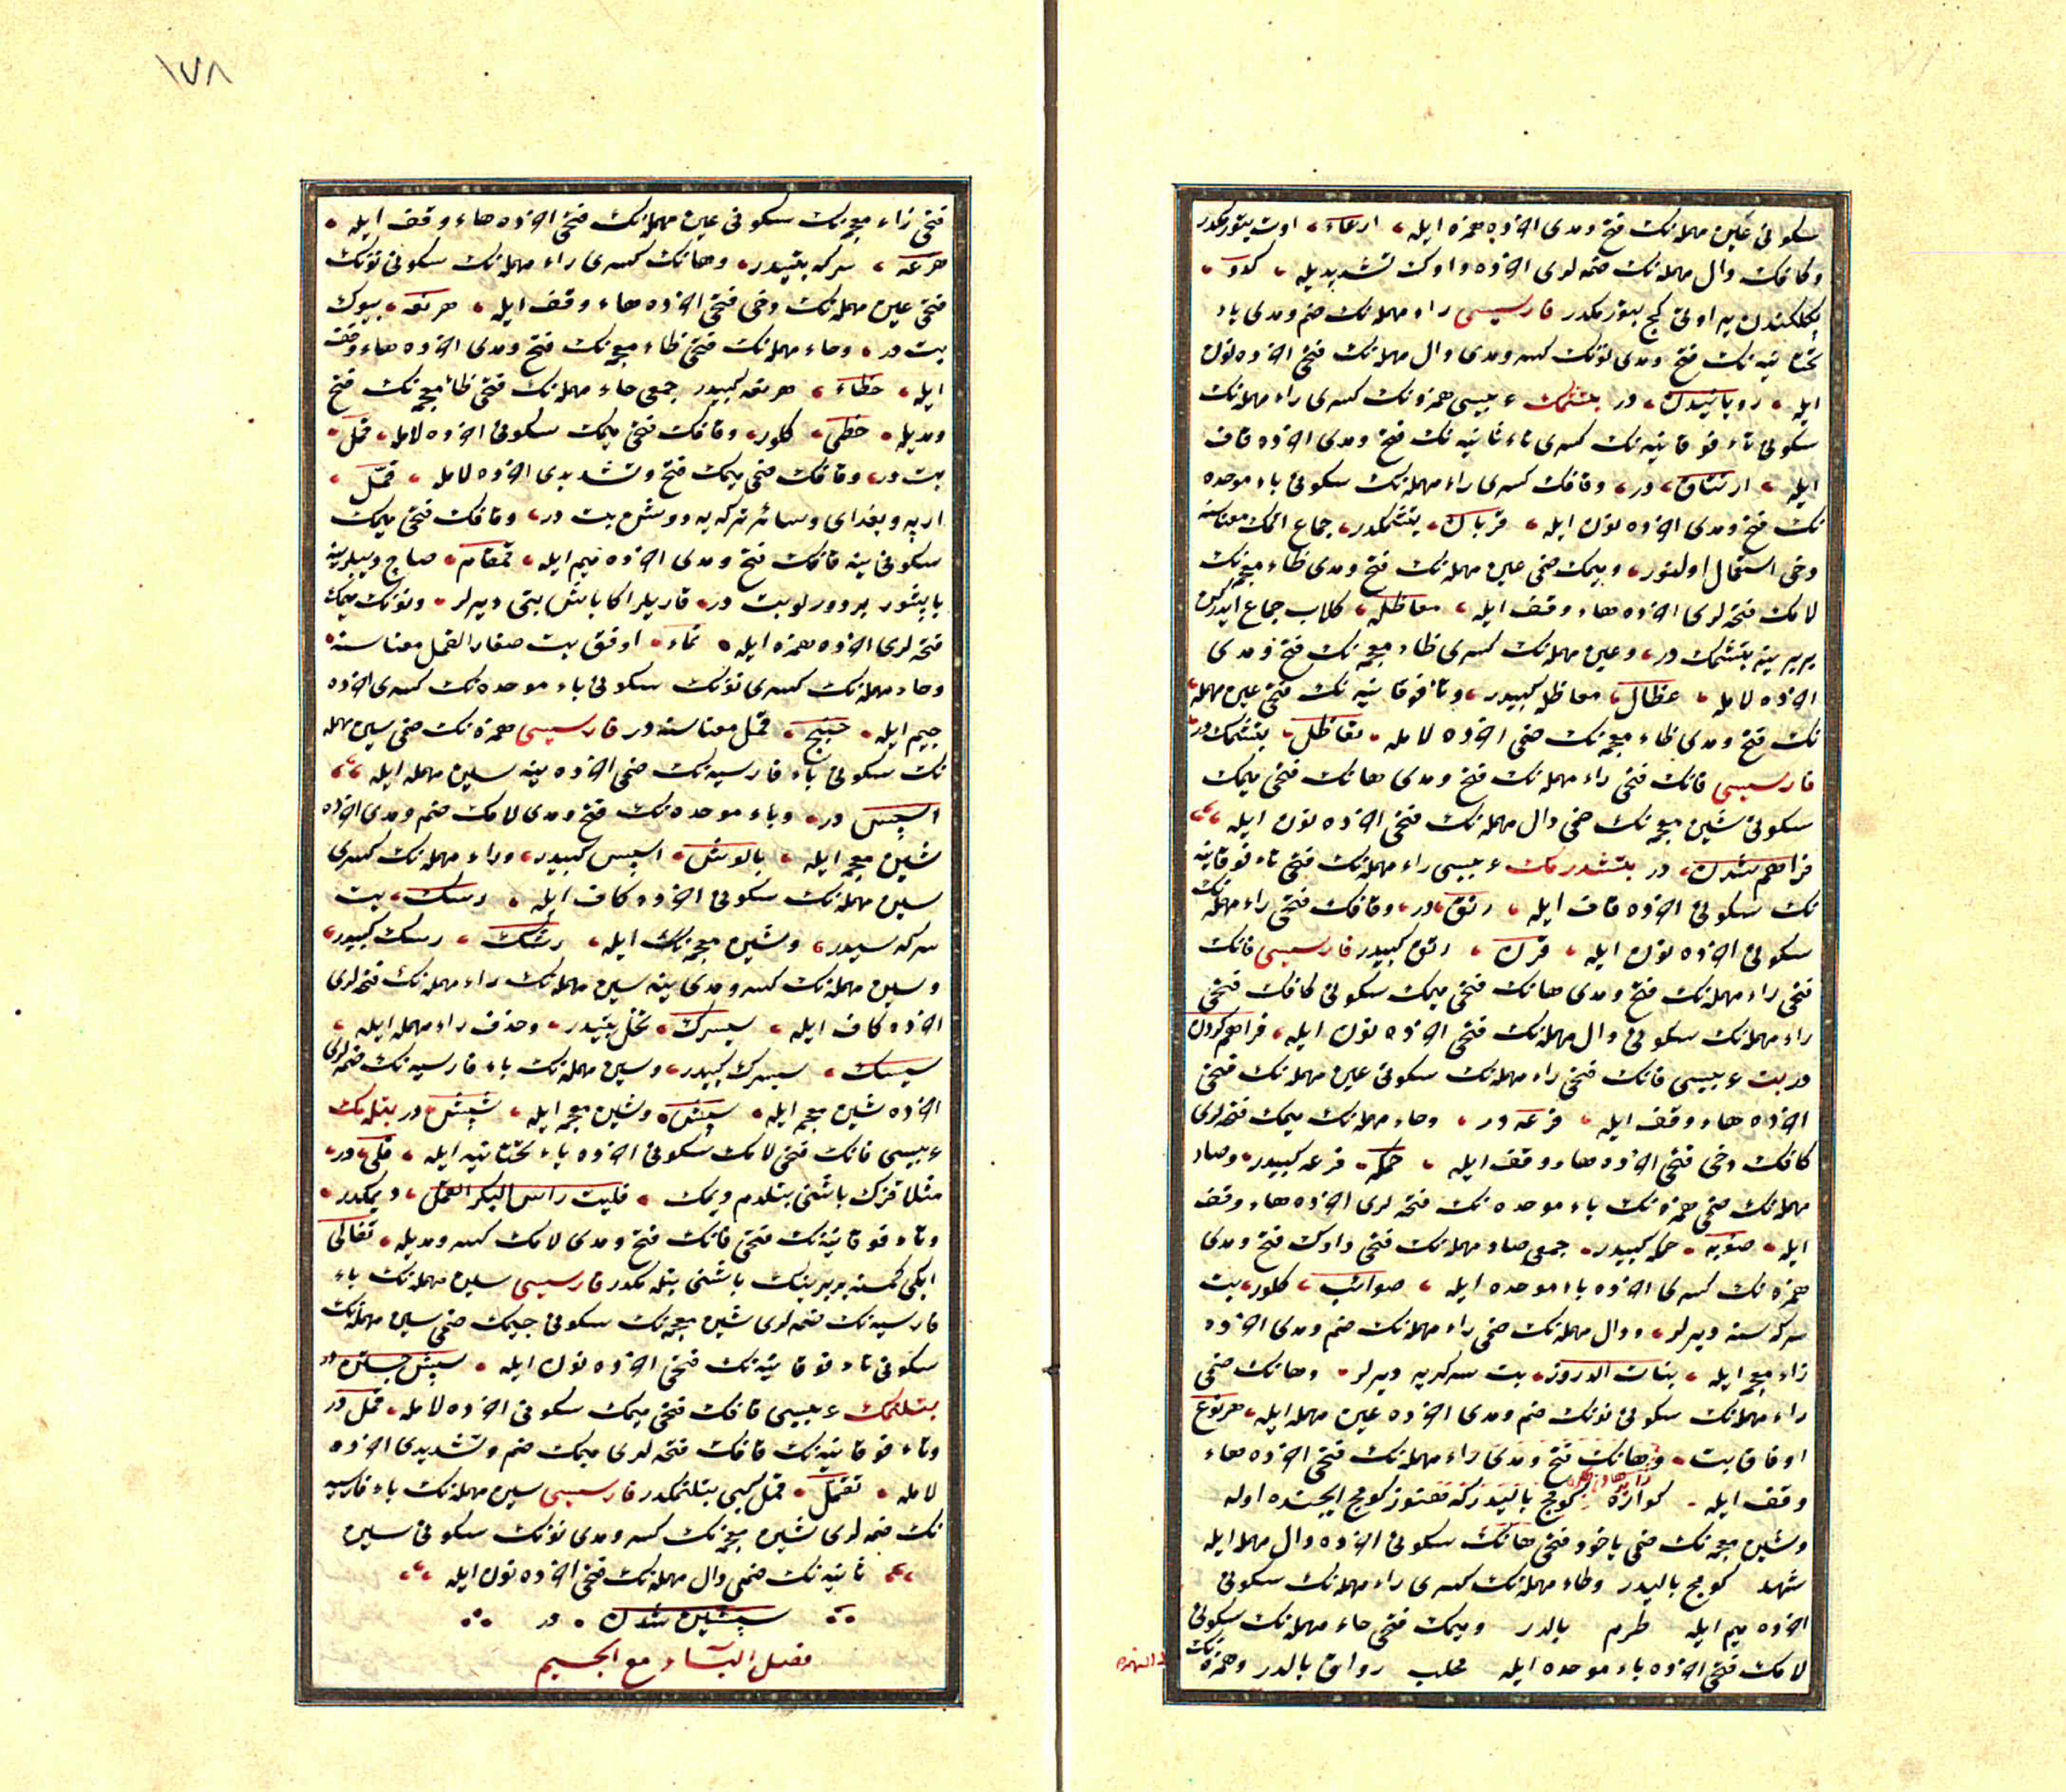 سكونی عین مهمله‌نك فتح و مدی اخرده همزه ایله، ارعاء، اوت بتورمكدر
و كافك دال مهمله‌نك ضمه‌لری اخرده واوك تشدیدیله، كدو،
یر اولی كج بتورمكدر فارسیسی راء مهمله‌نك ضم و مدی یاء
تحتانیه‌نك فتح و مدی نونك كسر و مدی دال مهمله‌نك فتحی اخرده نون
ایله، رویانیدن، در بتشمك عربیسی همزه‌نك كسری راء مهمله‌نك
سكونی تاء فوقانیه‌نك كسری تاء ثانیه‌نك فتح و مدی اخرده قاف
ایله، ارتتاق، در، و قافك كسری راء مهمله‌نك سكونی باء موحده
نك فتح و مدی اخرده نون ایله، قربان، بتشمكدر، جماع اتمك معناسنه
دخی استعمال اولنور، و میمك ضمی عین مهمله‌نك فتح و مدی ظاء معجمه‌نك
لامك فتحه‌لری اخرده هاء وقف ایله، معاظله، كلاب جماع ایدركن
بربرینه بتشمك در، و عین مهمله‌نك كسری ظاء معجمه‌نك فتح و مدی
اخرده لامله، عظال، معاظله كبیدر، و تاء فوقانیه‌نك فتحی عین مهمله
نك فتح و مدی ظاء معجمه‌نك ضمی اخرده لامله، تعاظل، بتشمك در
فارسیسی فانك فتحی راء مهمله‌نك فتح و مدی هانك فتحی میمك
سكونی شین معجمه‌نك ضمی دال مهمله‌نك فتحی اخرده نون ایله
فراهم شدن، در بتشدرمك عربیسی راء مهمله‌نك فتحی تاء فوقانیه
نك سكونی اخرده قاف ایله، رتق، در، و قافك فتحی راء مهمله‌نك
سكونی اخرده نون ایله، قرن، رتق كبیدر فارسیسی فانك
فتحی راء مهمله‌نك فتح و مدی هانك فتحی میمك سكونی كافك فتحی
راء مهمله‌نك سكونی دال مهمله‌نك فتحی اخرده نون ایله، فراهم كردن
در بت عربیسی فانك فتحی راء مهمله‌نك سكونی عین مهمله‌نك فتحی
اخرده هاء وقف ایله، فرعه در، و حاء مهمله‌نك میمك فتحه‌لری
كافك دخی فتحی اخرده هاء وقف ایله، حمكه، فرعه كبیدر، و صاد
مهمله‌نك ضمی همزه‌نك باء موحده‌نك فتحه‌لری اخرده هاء وقف
ایله، صؤبه، حمكه كبیدر، جمعی صاد مهمله‌نك فتحی واوك فتح و مدی
همزه‌نك كسری اخرده باء موحده ایله، صوائب، كلور، بت
سركه‌سنه دیرلر، و دال مهمله‌نك ضمی راء مهمله‌نك ضم و مدی اخرده
زاء معجمه ایله، بنات الدروز، بت سركه‌یه دیرلر، و هانك ضمی
راء مهمله‌نك سكونی نونك ضم و مدی اخرده عین مهمله ایله، هرنوع
اوفاق بت، و هانك فتح و مدی راء مهمله‌نك فتحی اخرده هاء
وقف ایله، كواره كومج بالیدر كه هنوز كومج ایچنده اوله
و شین معجمه‌نك ضمی یاخود فتحی هانك سكونی اخرده دال مهمله ایله
شهد كومج بالیدر و طاء مهمله‌نك كسری راء مهمله‌نك سكونی
اخرده میم ایله طرم بالدر و میمك فتحی حاء مهمله‌نك سكونی
لامك فتحی اخرده باء موحده ایله محلب رواق بالدر و همزه‌نك
١٧٨
فتحی زاء معجمه‌نك سكونی عین مهمله‌نك فتحی اخرده هاء وقف ایله،
هرعه، سركه بتیدر، و هانك كسری راء مهمله‌نك سكونی نونك
فتحی عین مهمله‌نك دخی فتحی اخرده هاء وقف ایله، هرنعه، بیوك
بت در، و حاء مهمله‌نك فتحی ظاء معجمه‌نك فتح و مدی اخرده هاء وقف
ایله، حظاء، هرنعه كبیدر جمعی حاء مهمله‌نك فتحی ظاء معجمه‌نك فتح
و مدیله، حظی، كلور، و قافك فتحی میمك سكونی اخرده لامله، قمل،
بت در، و قافك ضمی میمك فتح و تشدیدی اخرده لامله، قمّل،
ارپه و بغدای و سائر تركه‌یه دوشن بت در، و قافك فتحی میمك
سكونی ینه قافك فتح و مدی اخرده میم ایله، قمقام، صاچ دیبلرینه
یاپشور بر دورلو بت در، قاریلر اكا باش بتی دیرلر، و نونك میمك
فتحه‌لری اخرده همزه ایله، نماء، اوفق بت صغار القمل معناسنه
و حاء مهمله‌نك كسری نونك سكونی باء موحده‌نك كسری اخرده
جیم ایله، حنبج، قمل معناسنه در فارسیسی همزه‌نك ضمی سین مهمله
نك سكونی باء فارسیه‌نك ضمی اخرده ینه سین مهمله ایله
اسپس در، و باء موحده‌نك فتح و مدی لامك ضم و مدی اخرده
شین معجمه ایله، بالوش، اسپس كبیدر، و راء مهمله‌نك كسری
سین مهمله‌نك سكونی اخرده كاف ایله، رسك، بت
سركه‌سیدر، و شین معجمه‌نك ایله، رشك، رسك كبیدر،
و سین مهمله‌نك كسر و مدی ینه سین مهمله‌نك راء مهمله‌نك فتحه‌لری
اخرده كاف ایله، سیسرك، نخل بتیدر، و حذف راء مهمله ایله،
سیسك، سیسرك كبیدر، و سین مهمله‌نك باء فارسیه‌نك ضمه‌لری
اخرده شین معجمه ایله، سپش، و شین معجمه ایله، شپش، در بتلمك
عربیسی فانك فتحی لامك سكونی اخرده یاء تحتانیه ایله، فلی، در،
مثلا قزك باشنی بتلدم دیمك، فلیت راس البكر القمل، دیمكدر،
و تاء فوقانیه‌نك فتحی فانك فتح و مدی لامك كسر و مدیله، تفالی
ایكی كمسنه بربرینك باشنی بتلمكدر فارسیسی سین مهمله‌نك باء
فارسیه‌نك ضمه‌لری شین معجمه‌نك سكونی جیمك ضمی سین مهمله‌نك
سكونی تاء فوقانیه‌نك فتحی اخرده نون ایله، سپش جستن در
بتلنمك عربیسی قافك فتحی میمك سكونی اخرده لامله، قمل در
و تاء فوقانیه‌نك قافك فتحه‌لری میمك ضم و تشدیدی اخرده
لامله، تقمل، قمل كبی بتلنمكدر فارسیسی سین مهمله‌نك باء فارسیه
نك ضمه‌لری شین معجمه‌نك كسر و مدی نونك سكونی شین
ثانیه‌نك ضمی دال مهمله‌نك فتحی اخرده نون ایله
سپشین شدن، در
فصل الباء مع الجیم